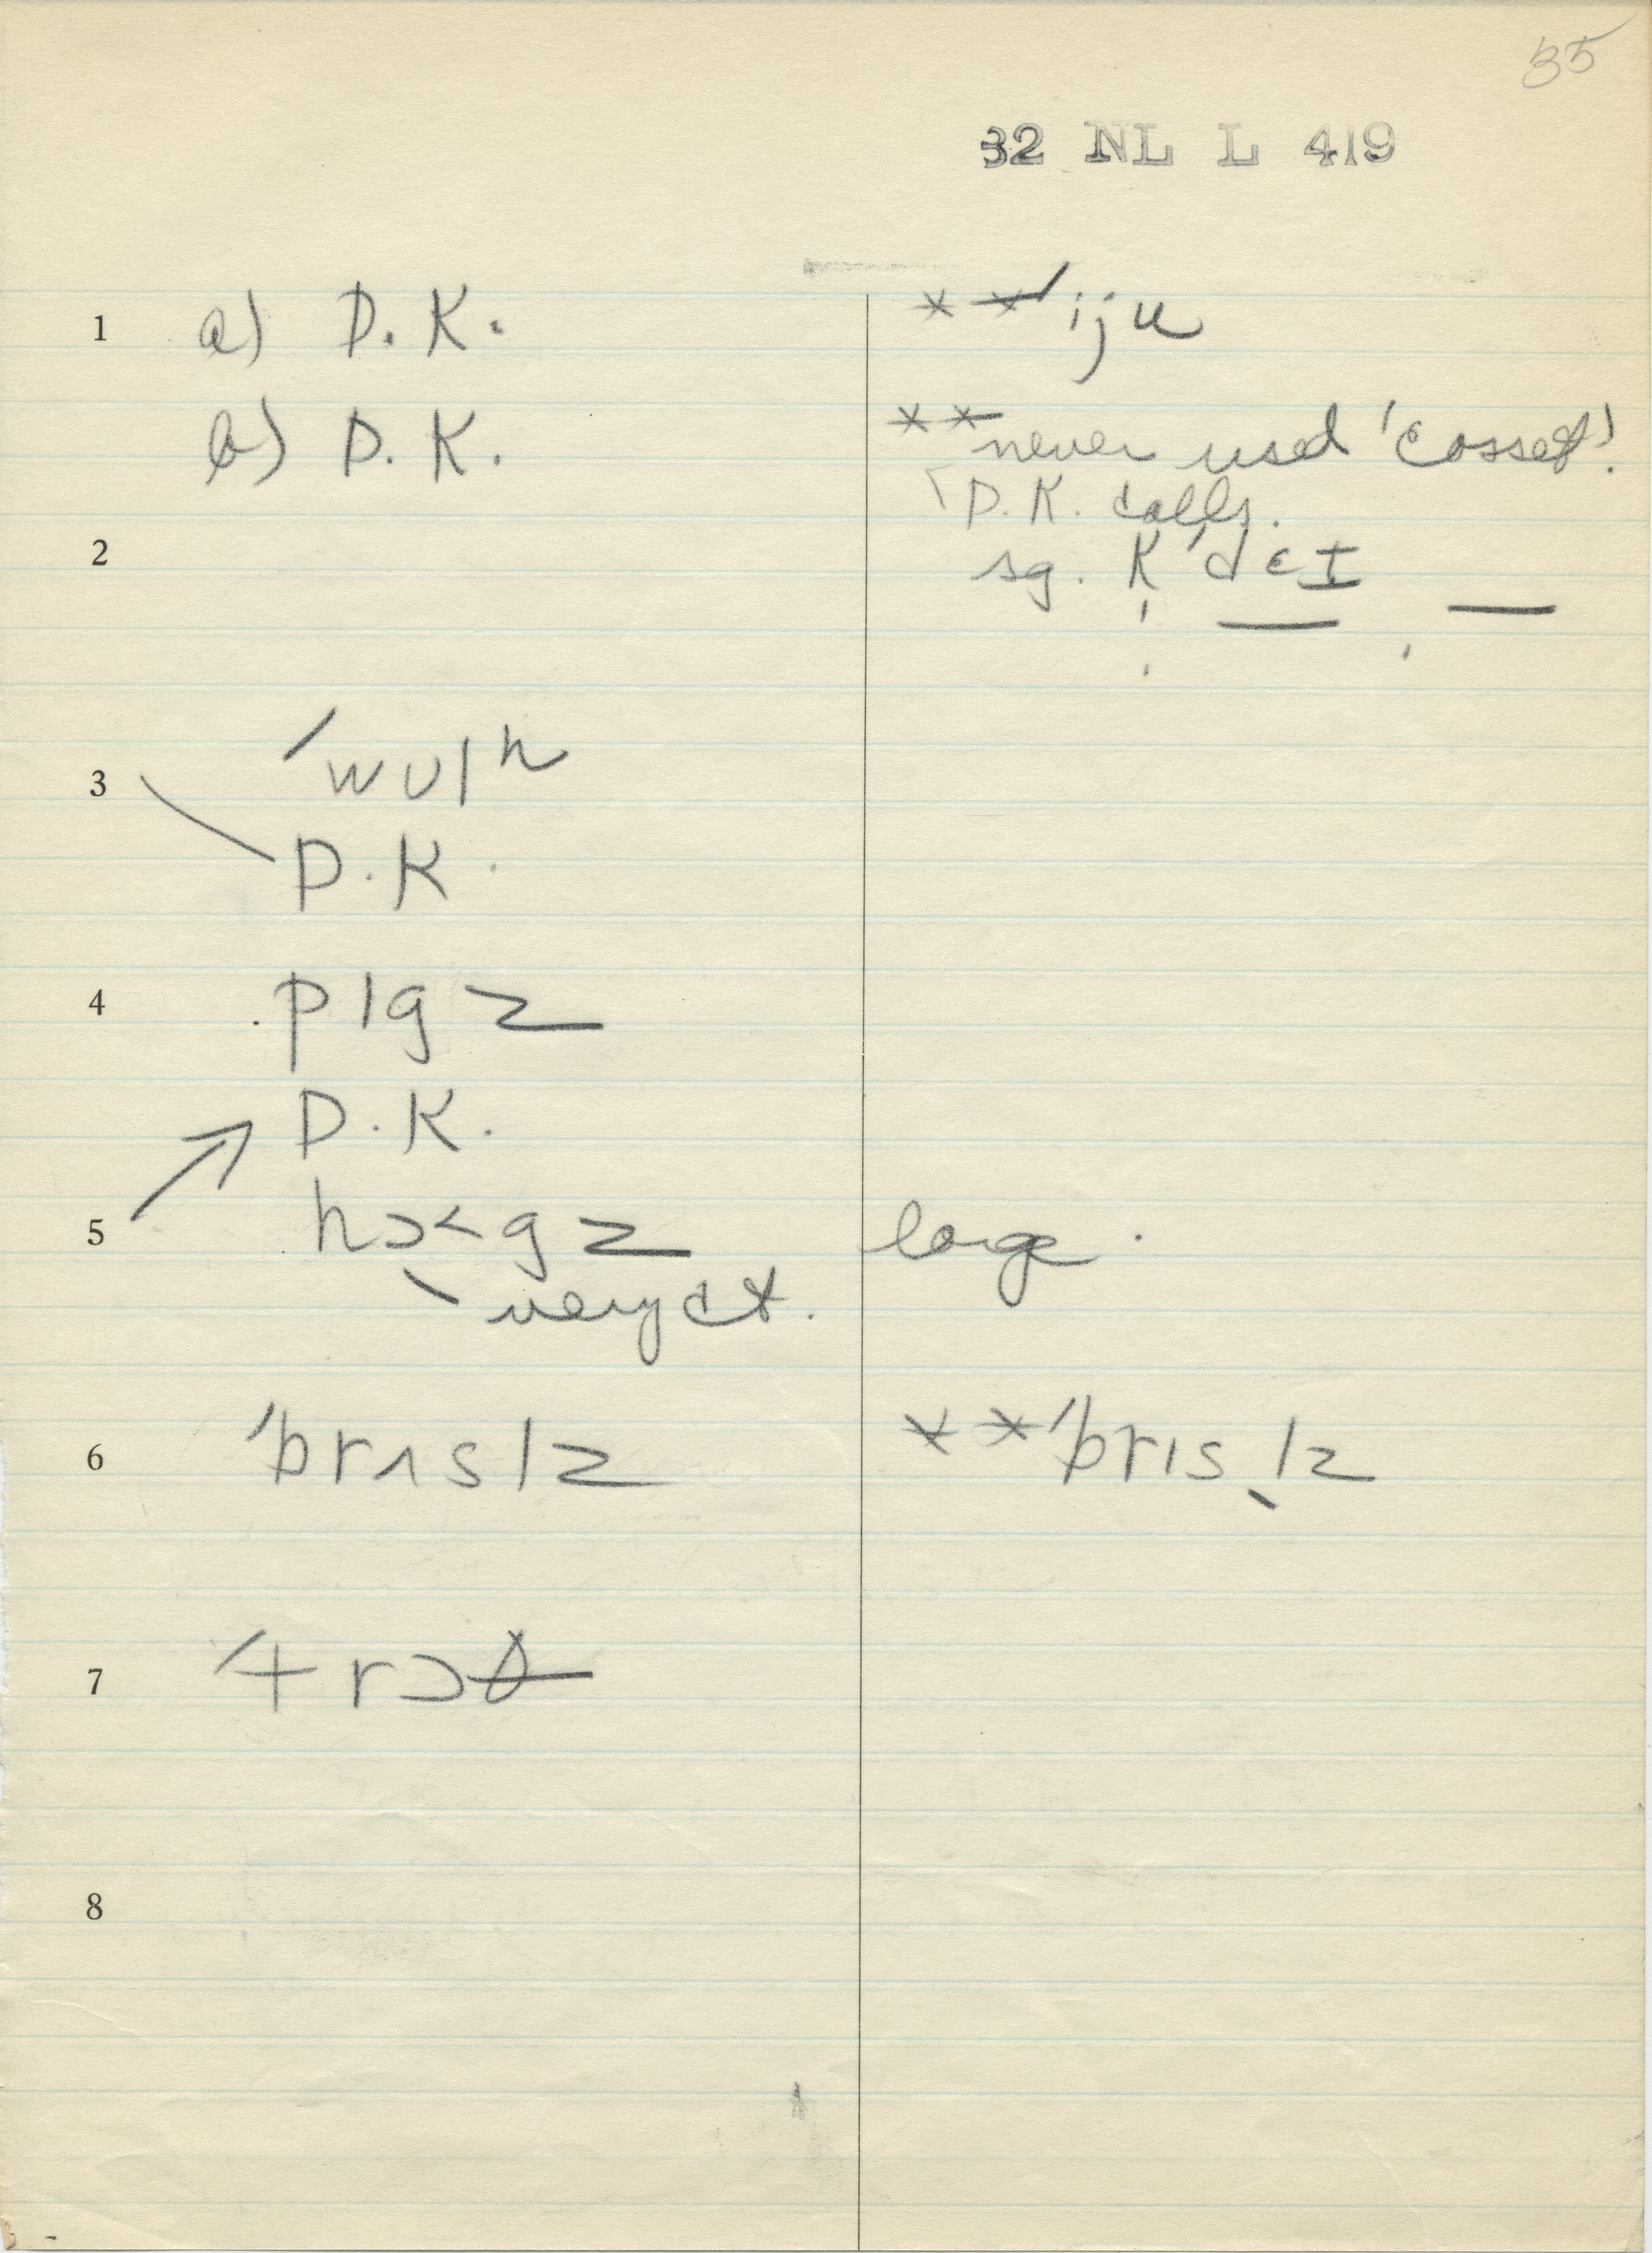 35
32 NL L 419
1 a) D. K. ** ˈiju
b) D. K. ** never used 'cosset'.
D. K. calls.
2 sg. K'dɛI
3 ˈwʊlʰ
D. K.
4 pɪgz
D. K.
5 hɔ˂gz large.
very ct.
6 ˈbrɪslz ** ˈbrɪslz
7 ˈtrɔθ
8